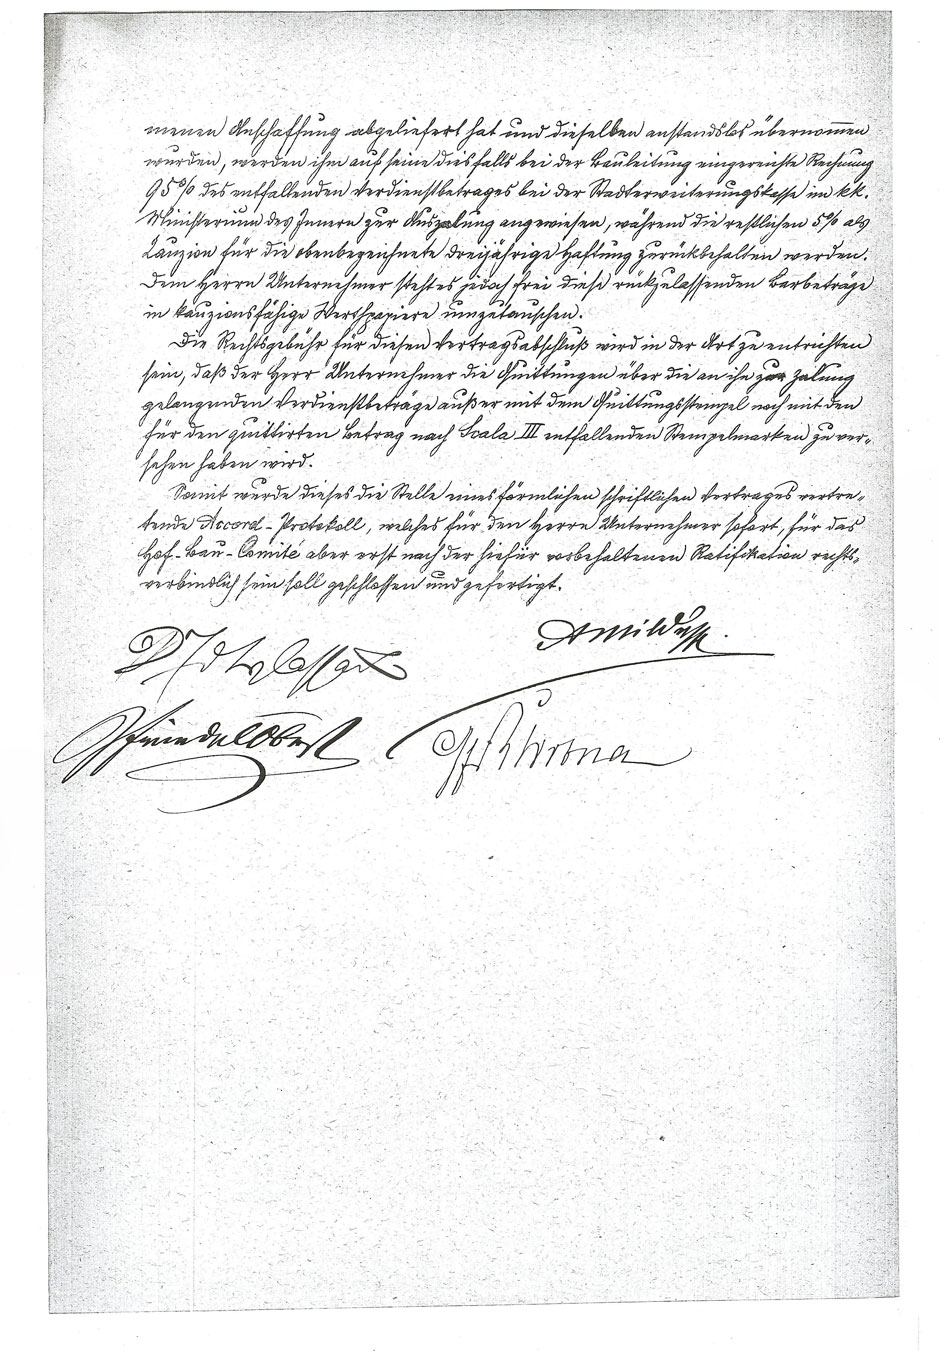 menen Anschaffung abgeliefert hat und dieselben anstandslos übernommen
wurden, werden ihm auf seine diesfalls bei der Bauleitung eingereichte Rechnung
95% des entfallenden Verdienstbetrages bei der Stadterweiterungskasse im k.k.
Ministerium des Innern zur Auszalung angewiesen, während die restlichen 5% als
Kauzion für die obenbezeichnete dreijährige Haftung zurückbehalten werden.
Dem Herrn Unternehmer steht es jedoch frei diese rückzulassenden Barbeträge
in kauzionsfähige Werthpapiere umzutauschen.
Die Rechtsgebühr für diesen Vertragsabschluß wird in der Art zu entrichten
sein, daß der Herr Unternehmer die Quittungen über die an ihn zur Zalung
gelangenden Verdienstbeträge außer mit dem Quittungsstempel noch mit den
für den quittirten Betrag nach Scala III entfallenden Stempelmarken zu ver-
sehen haben wird.
Somit wurde dieses die Stelle eines förmlichen schriftlichen Vertrages vertre-
tende Accord-Protokoll, welches für den Herrn Unternehmer sofort, für das
Hof-Bau-Comité aber erst nach der hiefür vorbehaltenen Ratifikation rechts-
verbindlich sein soll geschlossen und gefertigt.